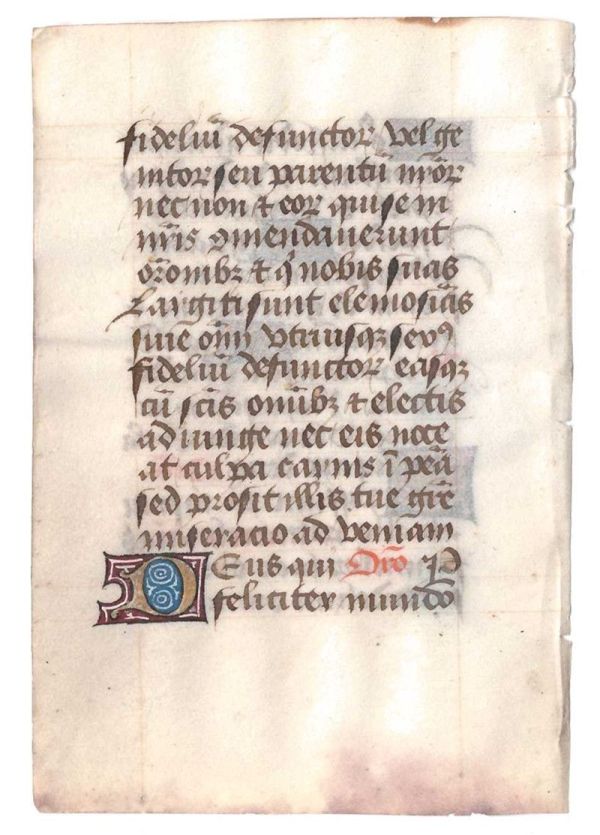 fideliũ defunctoꝝ vel ge
nitoꝝ seu parentũ nr̃oꝝ
nec non ⁊ eoꝝ qui se in
nr̃is om̃endauerunt
or̃onibꝫ ⁊ q nobis suas
Largiti sunt elemosĩas
vtriusqꝫ sexꝰ
fideliũ defunctoꝝ easqꝫ
cũ sc̃is om̃ibꝫ ⁊ electis
adiunge nec eis noce
at culpa carnis ĩ pẽa
sed prosit illis tue gr̃e
miseracio ad veniam
Deus qui Or̃o
feliciter mundo